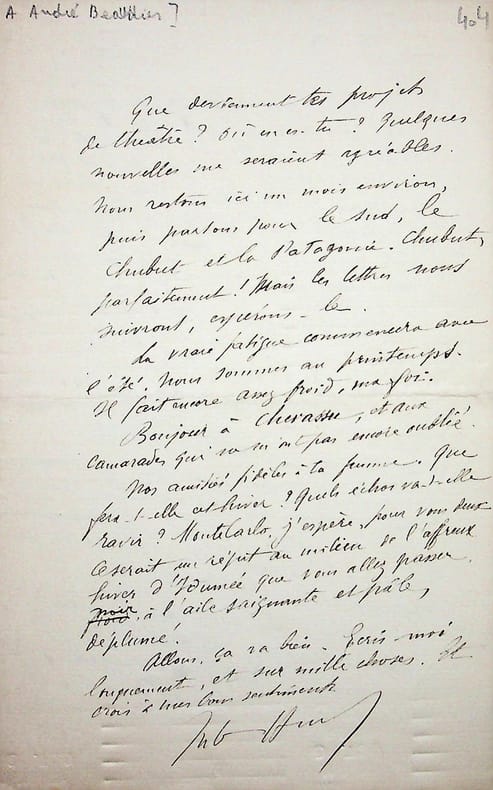 A André Beaunier]
404
Que deviennent tes projets
de théâtre ? Où en es-tu ? Quelques
nouvelles me seraient agréables.
Nous restons ici un mois environ,
puis partons pour le Sud, le
Chubut et la Patagonie. Chubut,
parfaitement ! Mais les lettres nous
suivront, espérons-le.
La vraie fatigue commencera avec
l'été. Nous sommes au printemps.
Il fait encore assez froid, ma foi.
Bonjour à et aux
camarades qui ne m'ont pas encore oublié.
Nos amitiés fidèles à ta femme. Que
fera-t-elle cet hiver ? Quels échos va-t-elle
ravir ? Monte Carlo, j'espère, pour vous deux
ce serait un répit au milieu de l'affreux
hiver que vous allez passer
noir, à l'aile saignante et pâle,
déplumé !
Allons, ça va bien. Ecris-moi
longuement, et sur mille choses. Et
crois à mes bons sentiments